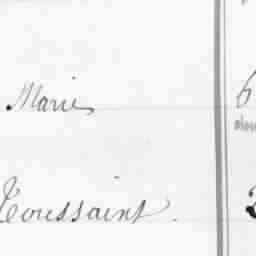 Marie
Toussaint.